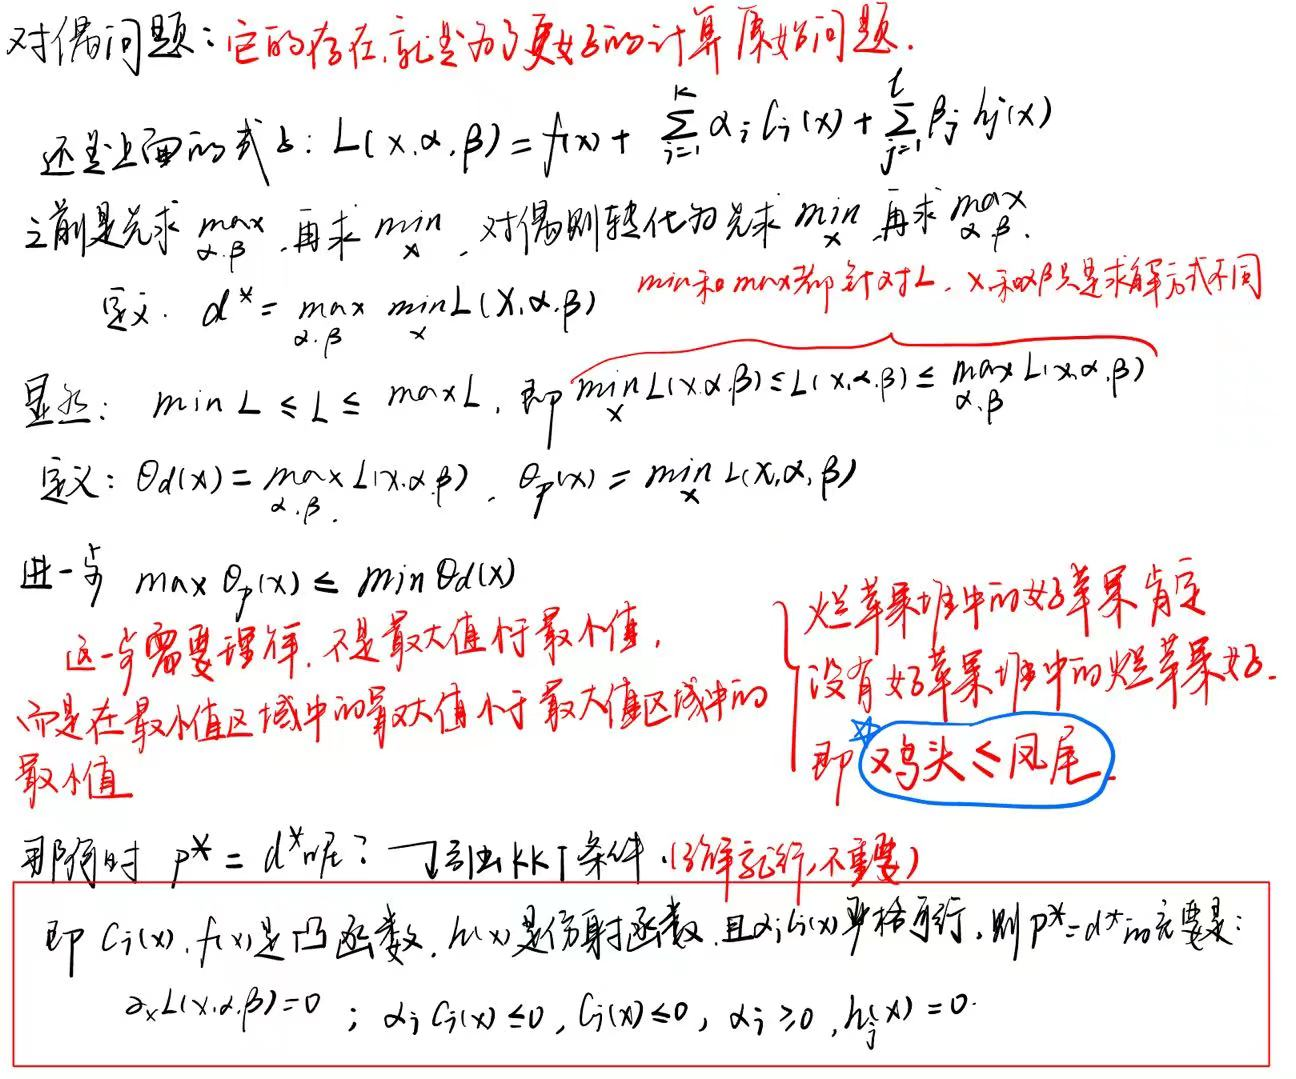 对偶问题：它的存在，就是为了更好的计算原始问题．
还是上面的式子：L(x,α,β) = f(x) + ∑_{i=1}^{k} α_i C_i(x) + ∑_{j=1}^{l} β_j h_j(x)
之前是先求 max_{α.β} 再求 min_x ，对偶则转化为先求 min_x 再求 max_{α.β}．
min和max都针对L，x和αβ只是求解方式不同
定义． d* = max_{α.β} min_x L(X,α,β)
显然： min L ≤ L ≤ max L，即 min_x L(x,α,β) ≤ L(x,α,β) ≤ max_{α.β} L(x,α,β)
定义：θd(x) = max_{α.β} L(x,α,β)，θp(x) = min_x L(x,α,β)
进一步 max θp(x) ≤ min θd(x)
这一步需要理解，不是最大值小于最小值，
而是在最小值区域中的最大值小于最大值区域中的
最小值
烂苹果堆中的好苹果肯定
没有好苹果堆中的烂苹果好．
即 鸡头 ≤ 凤尾
那何时 p* = d* 呢？ 引出KKT条件．(了解就行，不重要)
即 C_i(x), f(x)是凸函数，h(x)是仿射函数，且α_iC_i(x)严格可行，则p*=d*的充要是：
∂_x L(x,α,β)=0 ；α_i C_i(x) ≤0，C_i(x)≤0，α_i ≥0，h_j(x) =0